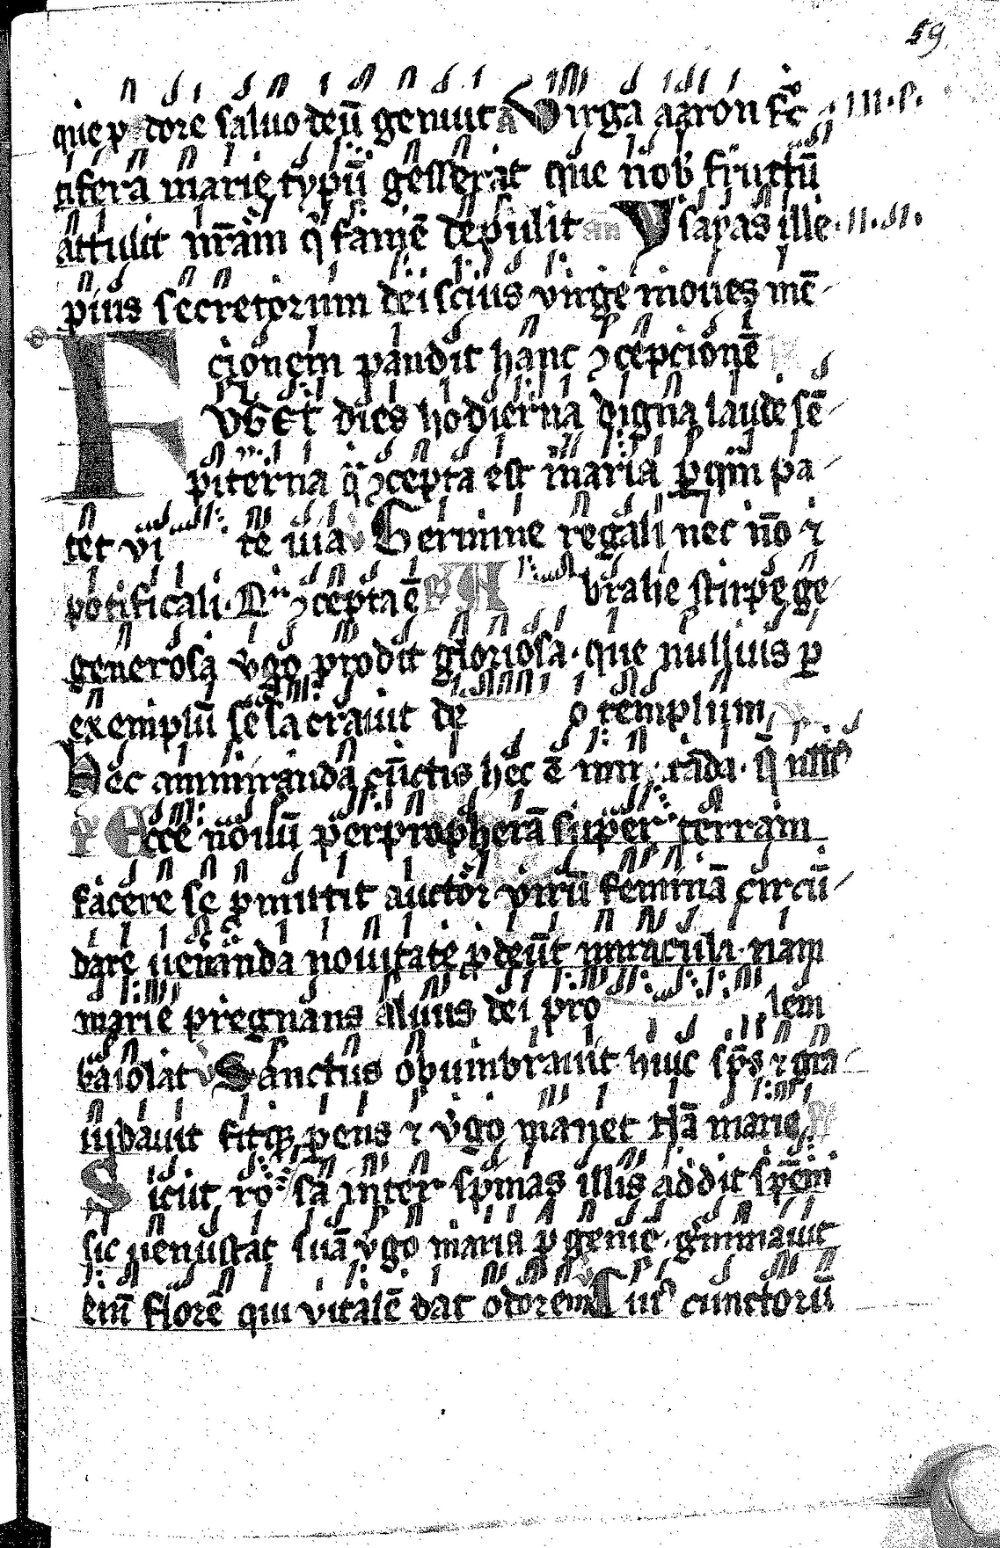 59
que pudore saluo deū genuit a Virga aaron fruc
tifera marie typū gesserat que nob fructū
attulit nr̄am q̄ famē depulit an Ysayas ille
pius secretorum dei scius virge mouez mē
cionem pandit hanc ꝯcepcionē
FVGET dies hodierna digna laude sē
piterna q̄ ꝯcepta est maria ꝑ qm̄ pa
tet vi te uia v Germine regali nec nō ⁊
potificali. Qn̄ ꝯcepta ē ꝶ Abrahe stirpe ge
generosa v̄go prodit gloriosa. que nullius ꝑ
exemplū se sacrauit de o templum
Hec ammiranda cūctis hec ē imitada. q̄ nllīꝰ
ꝶ Ecce nouū per prophetā super terram
facere se ꝓmittit auctor virū feminā circū
dare ueneranda nouitate ꝓdeūt miracula. nam
marie pregnans aluus dei pro lem
baiolat v Sanctus obumbrauit huic sp̄s ⁊ gra
uidauit fitqꝫ parens ⁊ v̄go manet tn̄ marie
Sicut rosa inter spinas illis addit spēm
sic uenustat suā v̄go maria ꝓgeniē. gm̄inauit
em̄ florē qui vitalē dat odorem Cuiꝰ cunctorū